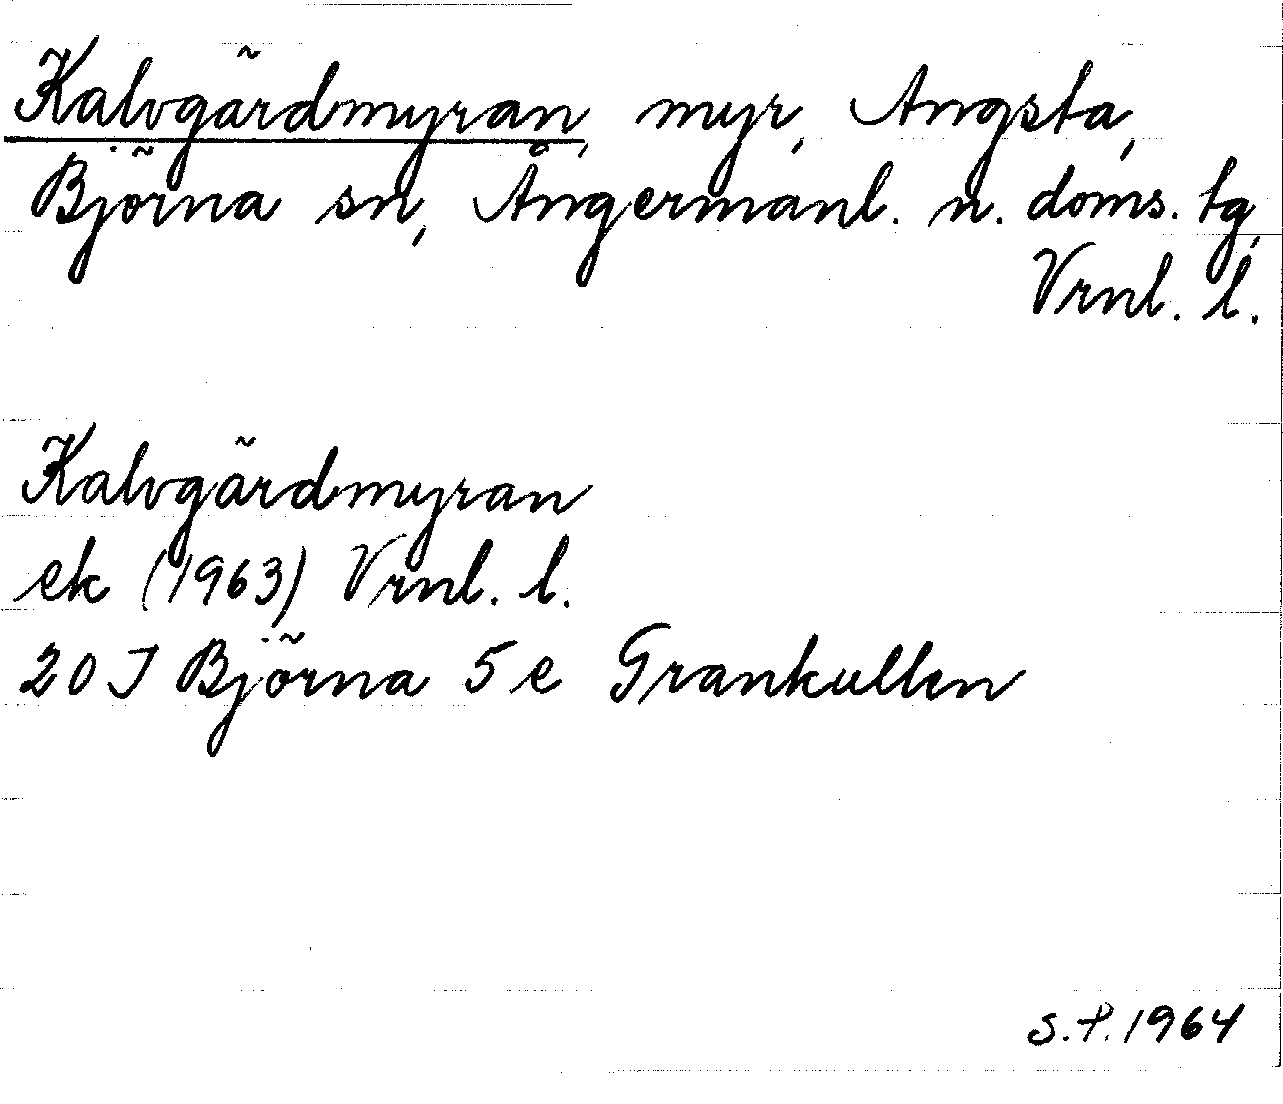 Kalvgärdmyran, myr, Angsta,
Björna sn, Ångermanl. n. doms. tg,
Vrnl. l.
Kalvgärdmyran
ek (1963) Vrnl. l.
20 J Björna 5 e Grankullen
S.P. 1964